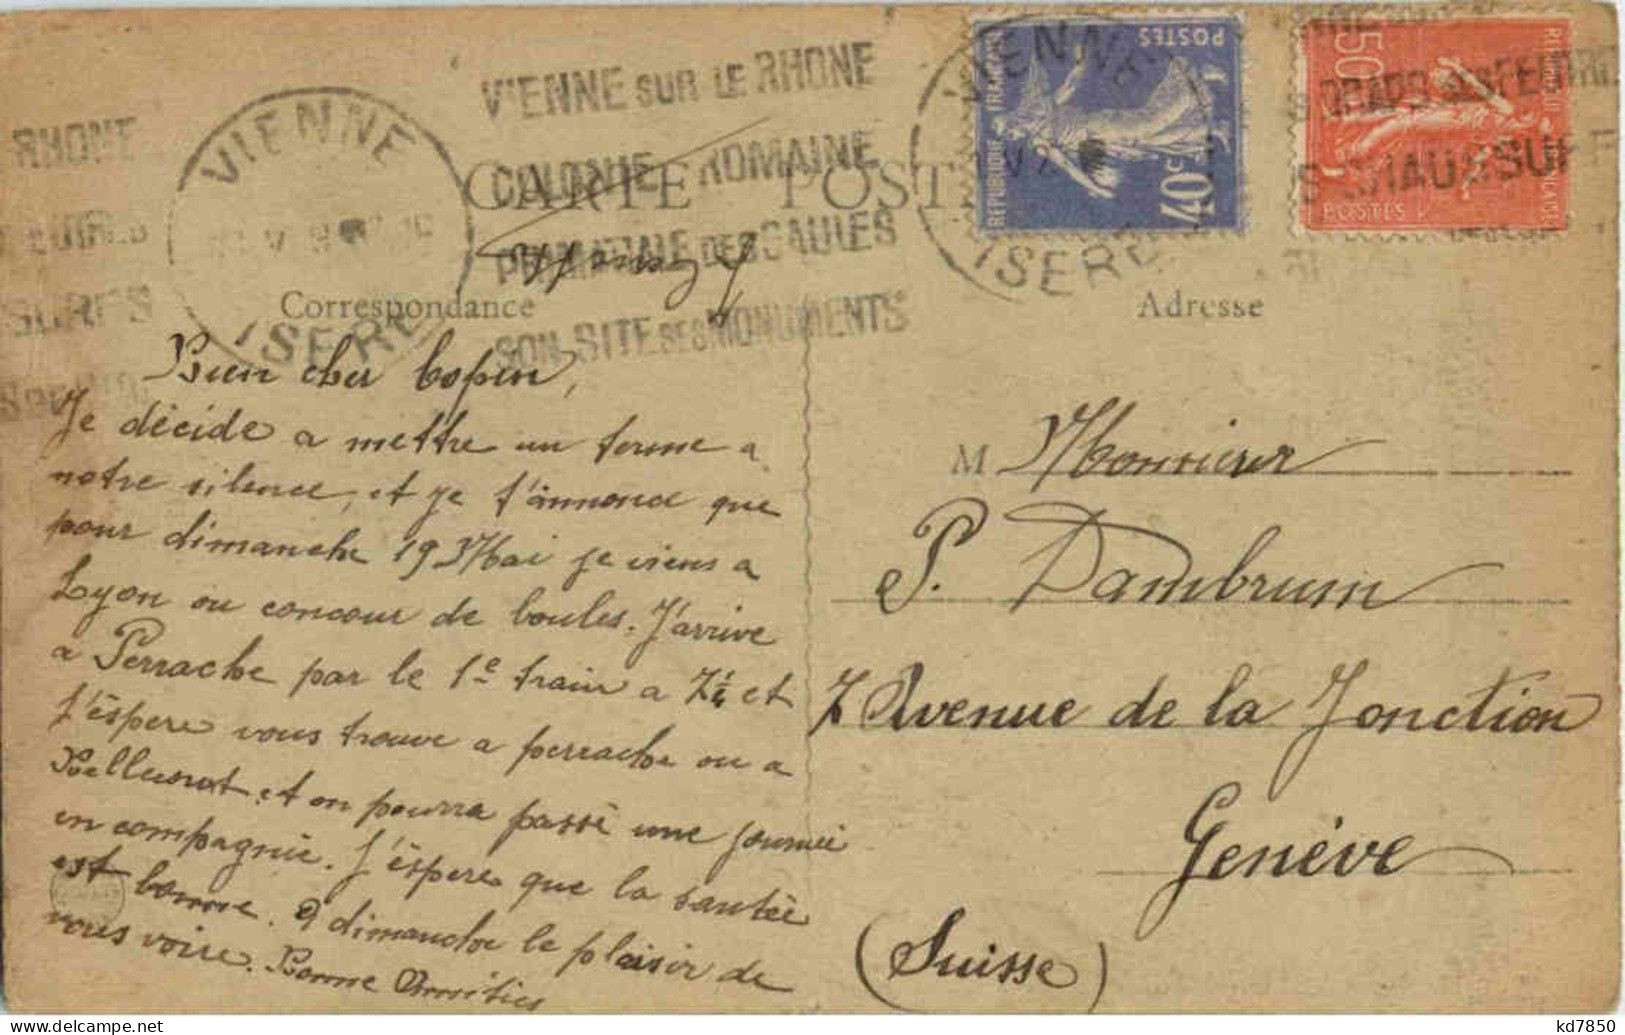 VIENNE SUR LE RHONE
COLONIE ROMAINE
DES SAULES
SON SITE SES MONUMENTS
VIENNE
ISERE
RHONE
CARTE POST
Correspondance
Adresse
VIENNE
ISERE
POSTES
REPUBLIQUE FRANÇAISE
40c
50
POSTES
Bien cher Copin,
Je décide a mettre un terme a
notre silence, et je t'annonce que
pour dimanche 19 Mai je viens a
Lyon ou concour de boules. J'arrive
a Perrache par le 1e train a 7¼ et
j'éspere vous trouve a perrache ou a
et on pourra passé une journée
en compagnie. J'éspere que la santée
est bonne. a dimanche le plaisir de
vous voire. Bonne Amities
M Monsieur
P. Dambrun
7 Avenue de la Jonction
Genéve
(Suisse)
kd7850